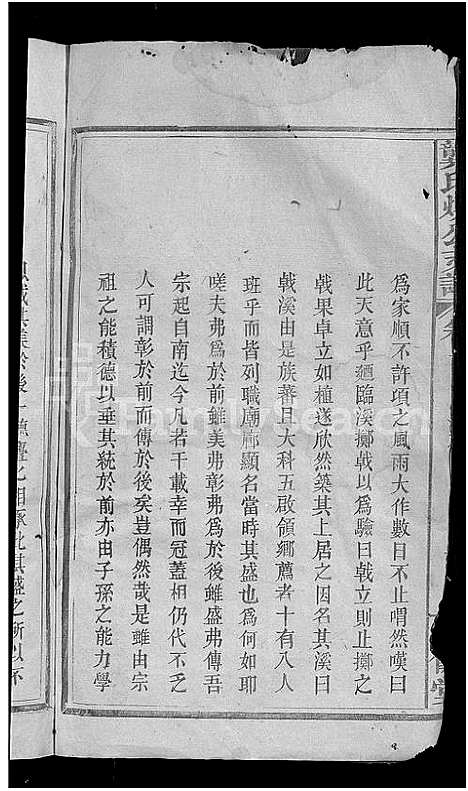 龔氏
公支譜
卷
為家順不許項之風雨大作數日不止喟然嘆曰
此天意乎廼臨溪擲戟以為驗曰戟立則止擲之
戟果卓立如植遂欣然築其上居之因名其溪曰
戟溪由是族蕃且大科五啟領鄉薦者十有八人
班乎而皆列職廟廊顯名當時其盛也為何如耶
嗟夫弗為於前雖美弗彰弗為於後雖盛弗傳吾
宗起自南迄今凡若干載幸而冠蓋相仍代不乏
人可謂彰於前而傳於後矣豈偶然哉是雖由宗
祖之能積德以垂其統於前亦由子孫之能力學
其美於後一
相承此其盛之所以不
FamilySearch